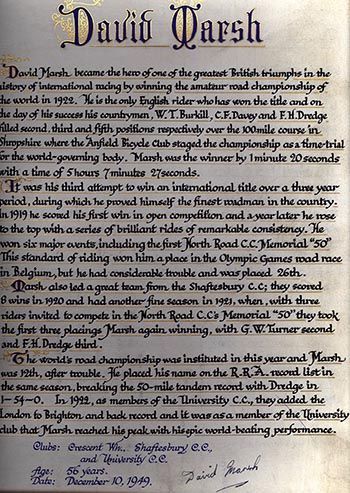 David Marsh
David Marsh became the hero of one of the greatest British triumphs in the
history of international racing by winning the amateur road championship of
the world in 1922. He is the only English rider who has won the title and on
the day of his success his countrymen, W.T. Burkill, C.F. Davey and F.H. Dredge
filled second, third and fifth positions respectively over the 100 mile course in
Shropshire where the Anfield Bicycle Club staged the championship as a time-trial
for the world-governing body. Marsh was the winner by 1 minute 20 seconds
with a time of 5 hours 7 minutes 27 seconds.
It was his third attempt to win an international title over a three year
period, during which he proved himself the finest roadman in the country.
In 1919 he scored his first win in open competition and a year later he rose
to the top with a series of brilliant rides of remarkable consistency. He
won six major events, including the first North Road C.C. Memorial "50"
This standard of riding won him a place in the Olympic Games road race
in Belgium, but he had considerable trouble and was placed 26th.
Marsh also led a great team from the Shaftesbury C.C; they scored
8 wins in 1920 and had another fine season in 1921, when, with three
riders invited to compete in the North Road C.C's Memorial "50" they took
the first three placings Marsh again winning, with G.W. Turner second
and F.H. Dredge third.
The world's road championship was instituted in this year and Marsh
was 12th, after trouble. He placed his name on the R.R.A. record list in
the same season, breaking the 50-mile tandem record with Dredge in
1-54-0. In 1922, as members of the University C.C., they added the
London to Brighton and back record and it was as a member of the University
club that Marsh reached his peak with his epic world-beating performance.
Clubs: Crescent Wn., Shaftesbury C.C.,
and University C.C.
Age: 56 years.
Date: December 10, 1949.
David Marsh